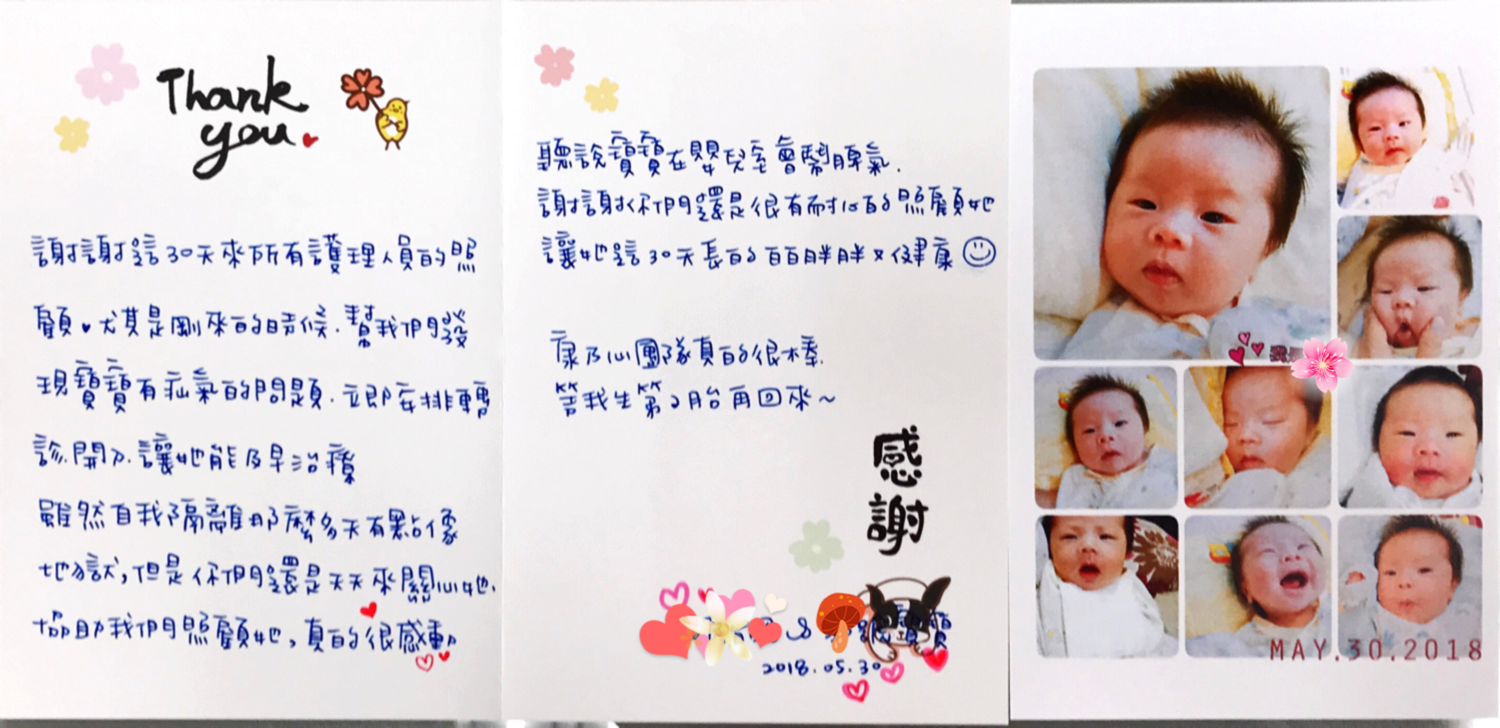 Thank
you
謝謝這30天來所有護理人員的照
顧♥尤其是剛來的時候.幫我們發
現寶寶有疝氣的問題.立即安排轉
診.開刀.讓她能及早治療
雖然自我隔離那麼多天有點像
地獄,但是你們還是天天來關心她.
協助我們照顧她,真的很感動
聽說寶寶在嬰兒室會鬧脾氣.
謝謝你們還是很有耐心的照顧她
讓她這30天長的白白胖胖又健康☺
康乃心團隊真的很棒.
等我生第2胎再回來~
感
謝
寶寶
2018.05.30
MAY.30.2018